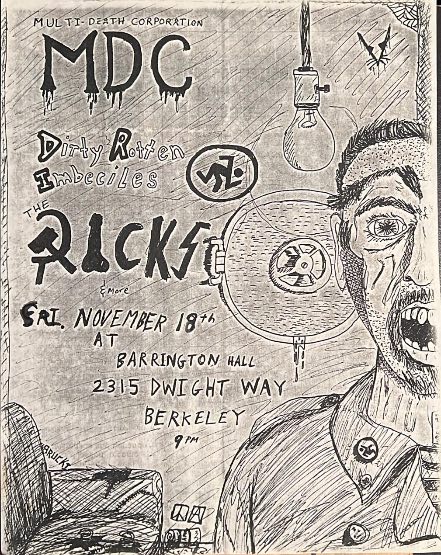 MULTI-DEATH CORPORATION
MDC
Dirty Rotten
Imbeciles
THE
DICKS
& MORE
FRI. NOVEMBER 18th
AT
BARRINGTON HALL
2315 DWIGHT WAY
BERKELEY
9 PM